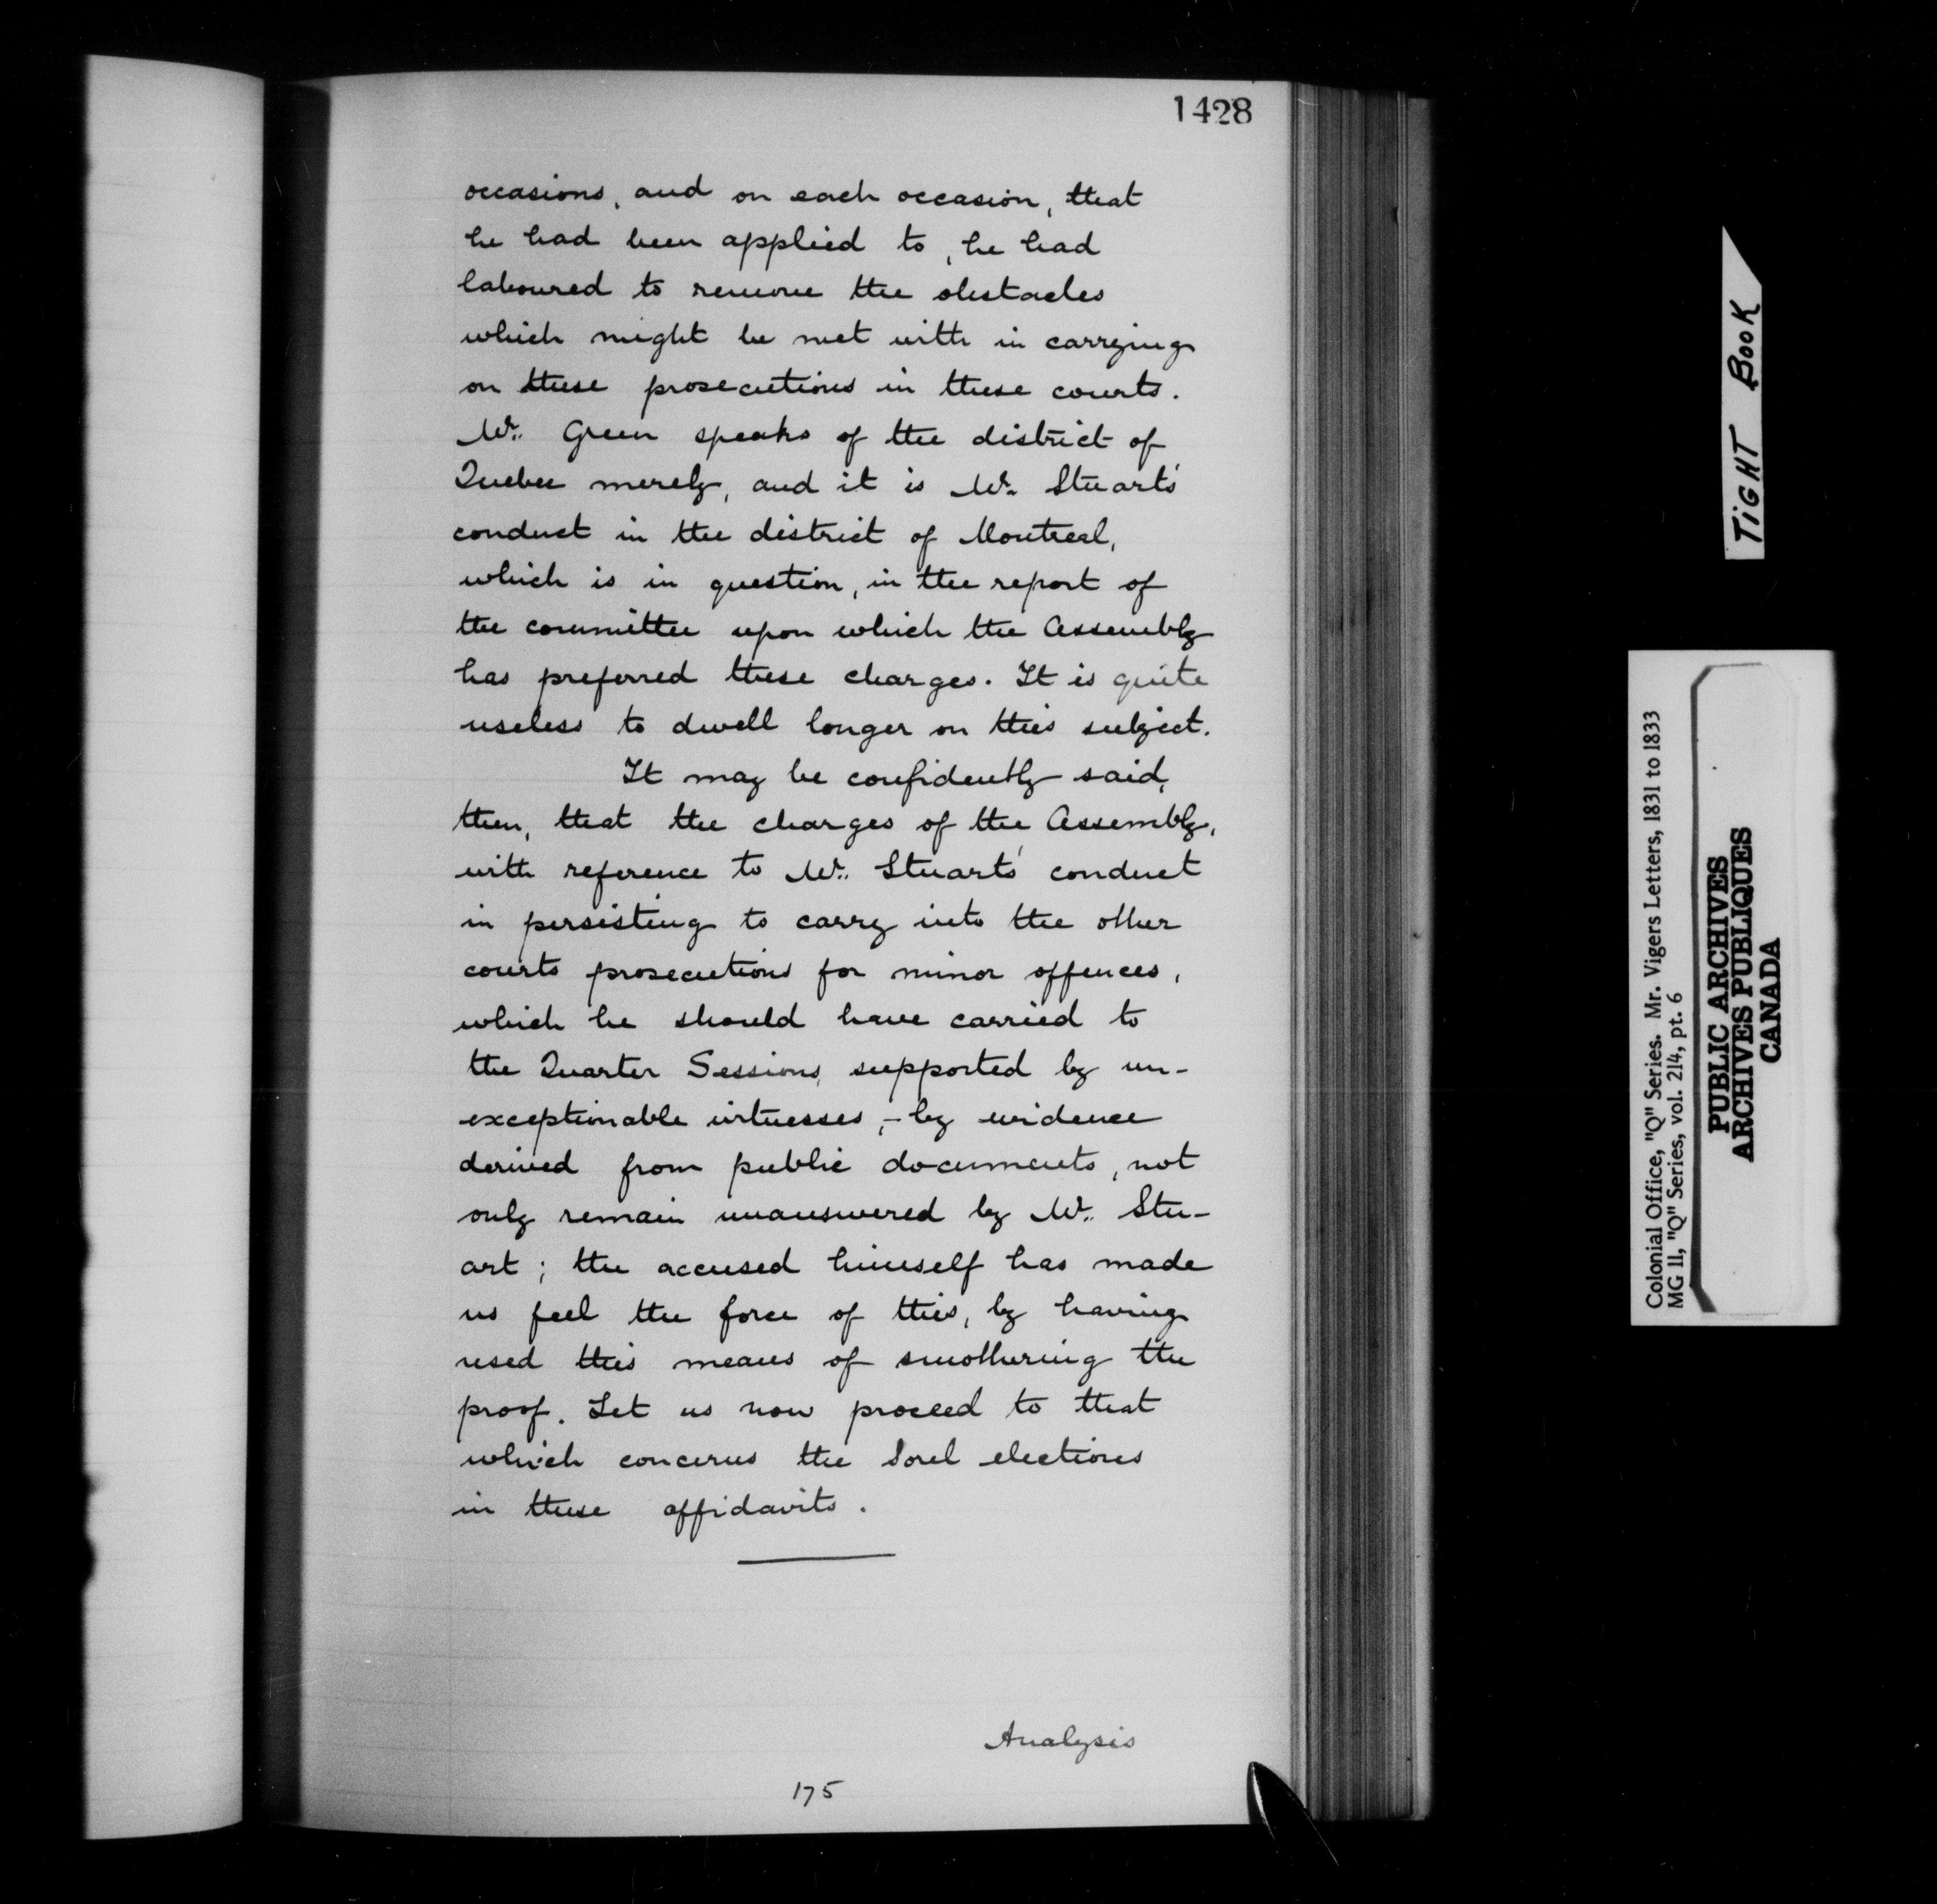 1428
occasions, and on each occasion, that
he had been applied to, he had
laboured to remove the obstacles
which might be met with in carrying
on these prosecutions in these courts.
Mr. Green speaks of the district of
Quebec merely, and it is Mr. Stuart's
conduct in the district of Montreal,
which is in question, in the report of
the committee upon which the Assembly
has preferred these charges. It is quite
useless to dwell longer on this subject.
It may be confidently said,
then, that the charges of the Assembly,
with reference to Mr. Stuart's conduct
in persisting to carry into the other
courts prosecutions for minor offences,
which he should have carried to
the Quarter Sessions, supported by un-
exceptionable witnesses, - by evidence
derived from public documents, not
only remain unanswered by Mr. Stu-
art; the accused himself has made
us feel the force of this, by having
used this means of smothering the
proof. Let us now proceed to that
which concerns the Sorel elections
in these affidavits.
Analysis
175
TIGHT BOOK
Colonial Office, "Q" Series. Mr. Vigers Letters, 1831 to 1833
MG 11, "Q" Series, vol. 214, pt. 6
PUBLIC ARCHIVES
ARCHIVES PUBLIQUES
CANADA